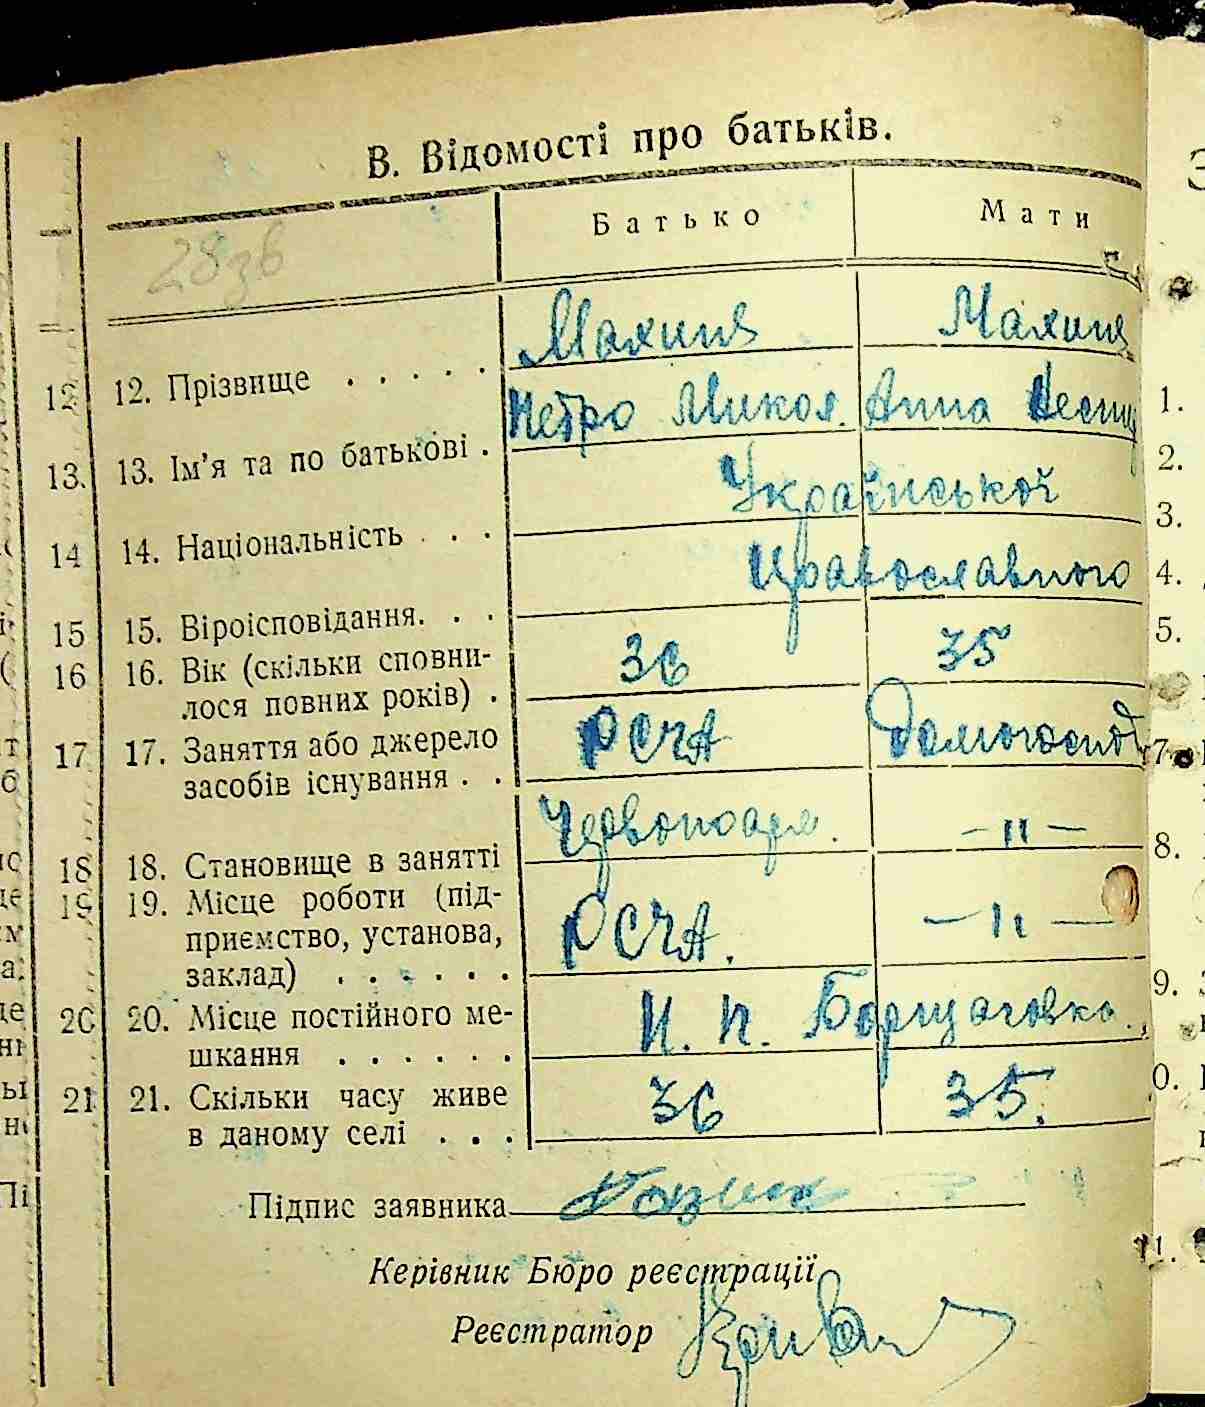 В. Відомості про батьків.
Батько Мати
28зв
12. Прізвище . . . . . Махиня Махиня
13. Ім'я та по батькові . Петро Микол. Анна
14. Національність . . . Української
15. Віроісповідання. . . Православного
16. Вік (скільки сповни- 36 35
лося повних років) .
17. Заняття або джерело РСЧА Домогоспод
засобів існування . .
18. Становище в занятті Червоноарм. -"-
19. Місце роботи (під- РСЧА. -"-
приємство, установа,
заклад) . . . . . .
20. Місце постійного ме- Борщаговка
шкання . . . . . .
21. Скільки часу живе 36 35.
в даному селі . . .
Підпис заявника
Керівник Бюро реєстрації
Реєстратор
12
13.
14
15
16
17
18
19
20
21
1.
2.
3.
4.
5.
7.
8.
9.